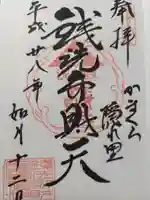 奉拝
かまくら
隠れ里
銭洗弁財天
平成廿八年
如月十二日